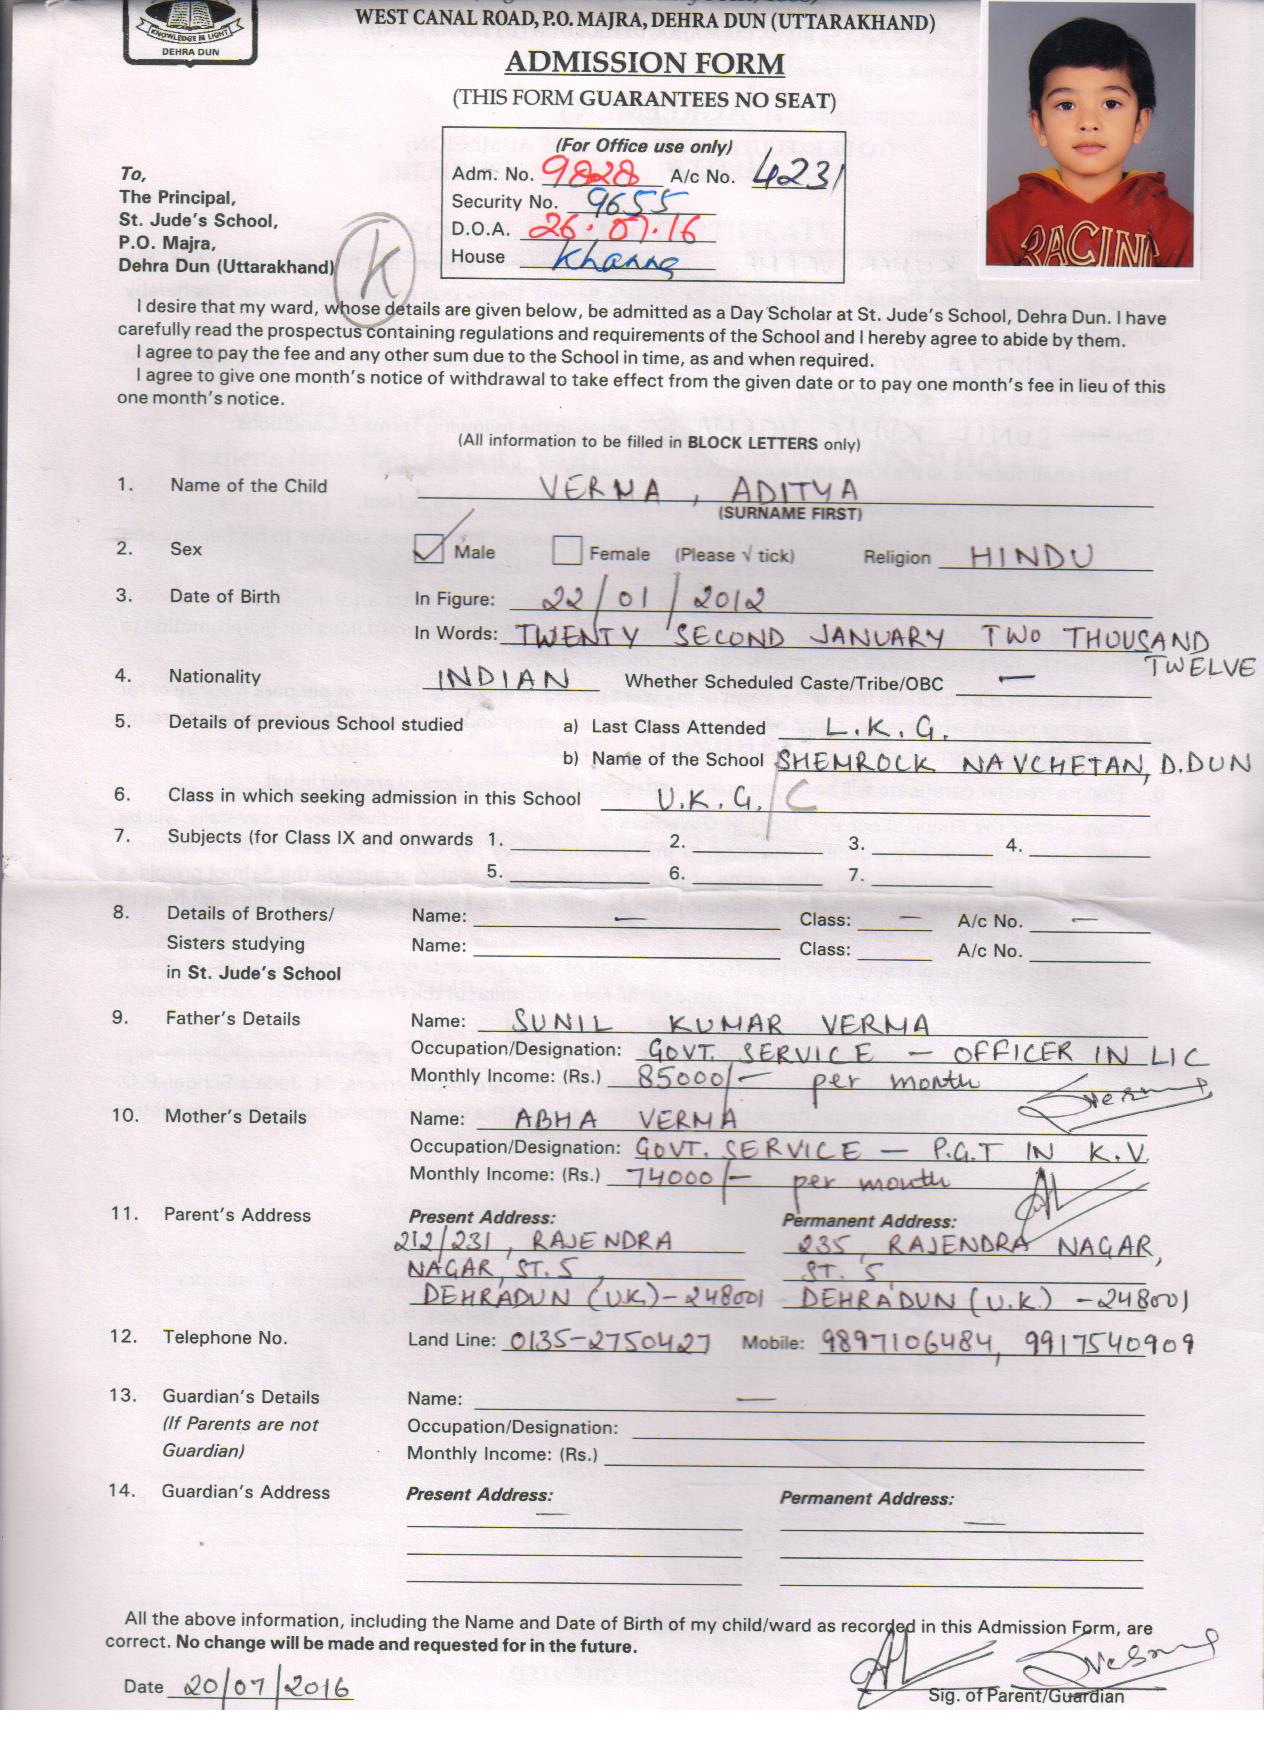 KNOWLEDGE IS LIGHT
DEHRA DUN
WEST CANAL ROAD, P.O. MAJRA, DEHRA DUN (UTTARAKHAND)
ADMISSION FORM
(THIS FORM GUARANTEES NO SEAT)
(For Office use only)
Adm. No. 9828 A/c No. 4231
Security No. 9655
D.O.A. 26.07.16
House Khanna
To,
The Principal,
St. Jude's School,
P.O. Majra,
Dehra Dun (Uttarakhand)
K
RACIN
I desire that my ward, whose details are given below, be admitted as a Day Scholar at St. Jude's School, Dehra Dun. I have
carefully read the prospectus containing regulations and requirements of the School and I hereby agree to abide by them.
I agree to pay the fee and any other sum due to the School in time, as and when required.
I agree to give one month's notice of withdrawal to take effect from the given date or to pay one month's fee in lieu of this
one month's notice.
(All information to be filled in BLOCK LETTERS only)
1. Name of the Child VERMA , ADITYA
(SURNAME FIRST)
2. Sex Male Female (Please √ tick) Religion HINDU
3. Date of Birth In Figure: 22/01/2012
In Words: TWENTY SECOND JANUARY TWO THOUSAND
TWELVE
4. Nationality INDIAN Whether Scheduled Caste/Tribe/OBC —
5. Details of previous School studied a) Last Class Attended L.K.G.
b) Name of the School SHEMROCK NAVCHETAN, D.DUN
6. Class in which seeking admission in this School U.K.G./C
7. Subjects (for Class IX and onwards 1. 2. 3. 4.
5. 6. 7.
8. Details of Brothers/ Name: — Class: — A/c No. —
Sisters studying Name: Class: A/c No.
in St. Jude's School
9. Father's Details Name: SUNIL KUMAR VERMA
Occupation/Designation: GOVT. SERVICE — OFFICER IN LIC
Monthly Income: (Rs.) 85000/- per month
10. Mother's Details Name: ABHA VERMA
Occupation/Designation: GOVT. SERVICE — P.G.T IN K.V.
Monthly Income: (Rs.) 74000/- per month
11. Parent's Address Present Address: Permanent Address:
212/231, RAJENDRA 235, RAJENDRA NAGAR,
NAGAR, ST. 5, ST. 5,
DEHRADUN (U.K.) - 248001 DEHRADUN (U.K.) - 248001
12. Telephone No. Land Line: 0135-2750427 Mobile: 9897106484, 9917540909
13. Guardian's Details Name: —
(If Parents are not Occupation/Designation:
Guardian) Monthly Income: (Rs.)
14. Guardian's Address Present Address: — Permanent Address: —
All the above information, including the Name and Date of Birth of my child/ward as recorded in this Admission Form, are
correct. No change will be made and requested for in the future.
Date 20/07/2016
Sig. of Parent/Guardian